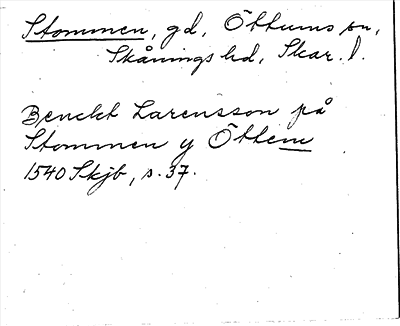 Stommen, gd, Öttums sn,
Skånings hd, Skar. l.
Benckt Larensson på
Stommen y Öttem
1540 Skjb, s. 37.